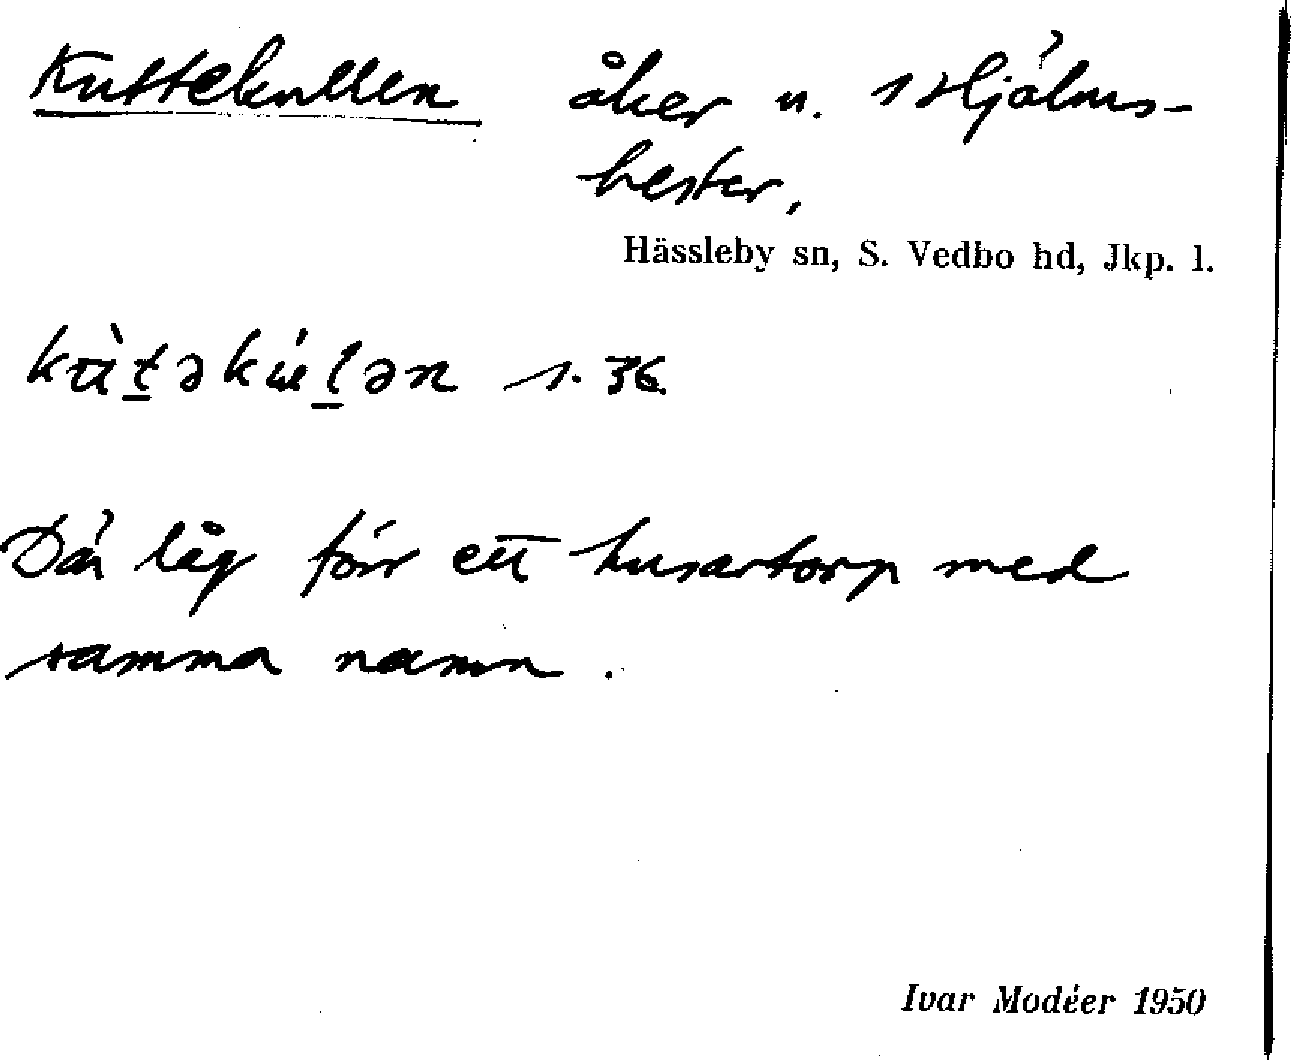 Kuttekullen åker u. 1 Hjälms-
hester,
Hässleby sn, S. Vedbo hd, Jkp. l.
kùt̲əkúl̲ən s. 36.
Där låg förr ett husartorp med
samma namn.
Ivar Modéer 1950